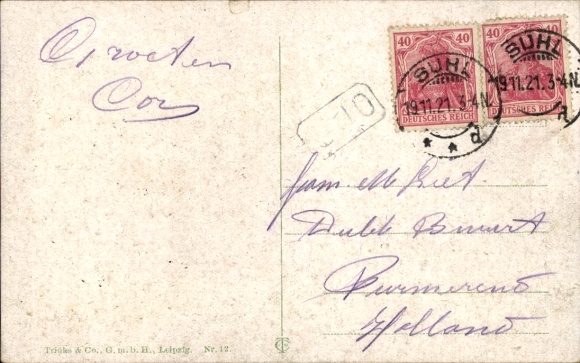 Groeten
Cor
40 40
DEUTSCHES REICH DEUTSCHES REICH
SUHL SUHL
19.11.21.3-4N. 19.11.21.3-4N.
a a
Fam
Dubb Buurt
Purmerend
Holland
Trinks & Co., G. m. b. H., Leipzig. Nr. 12